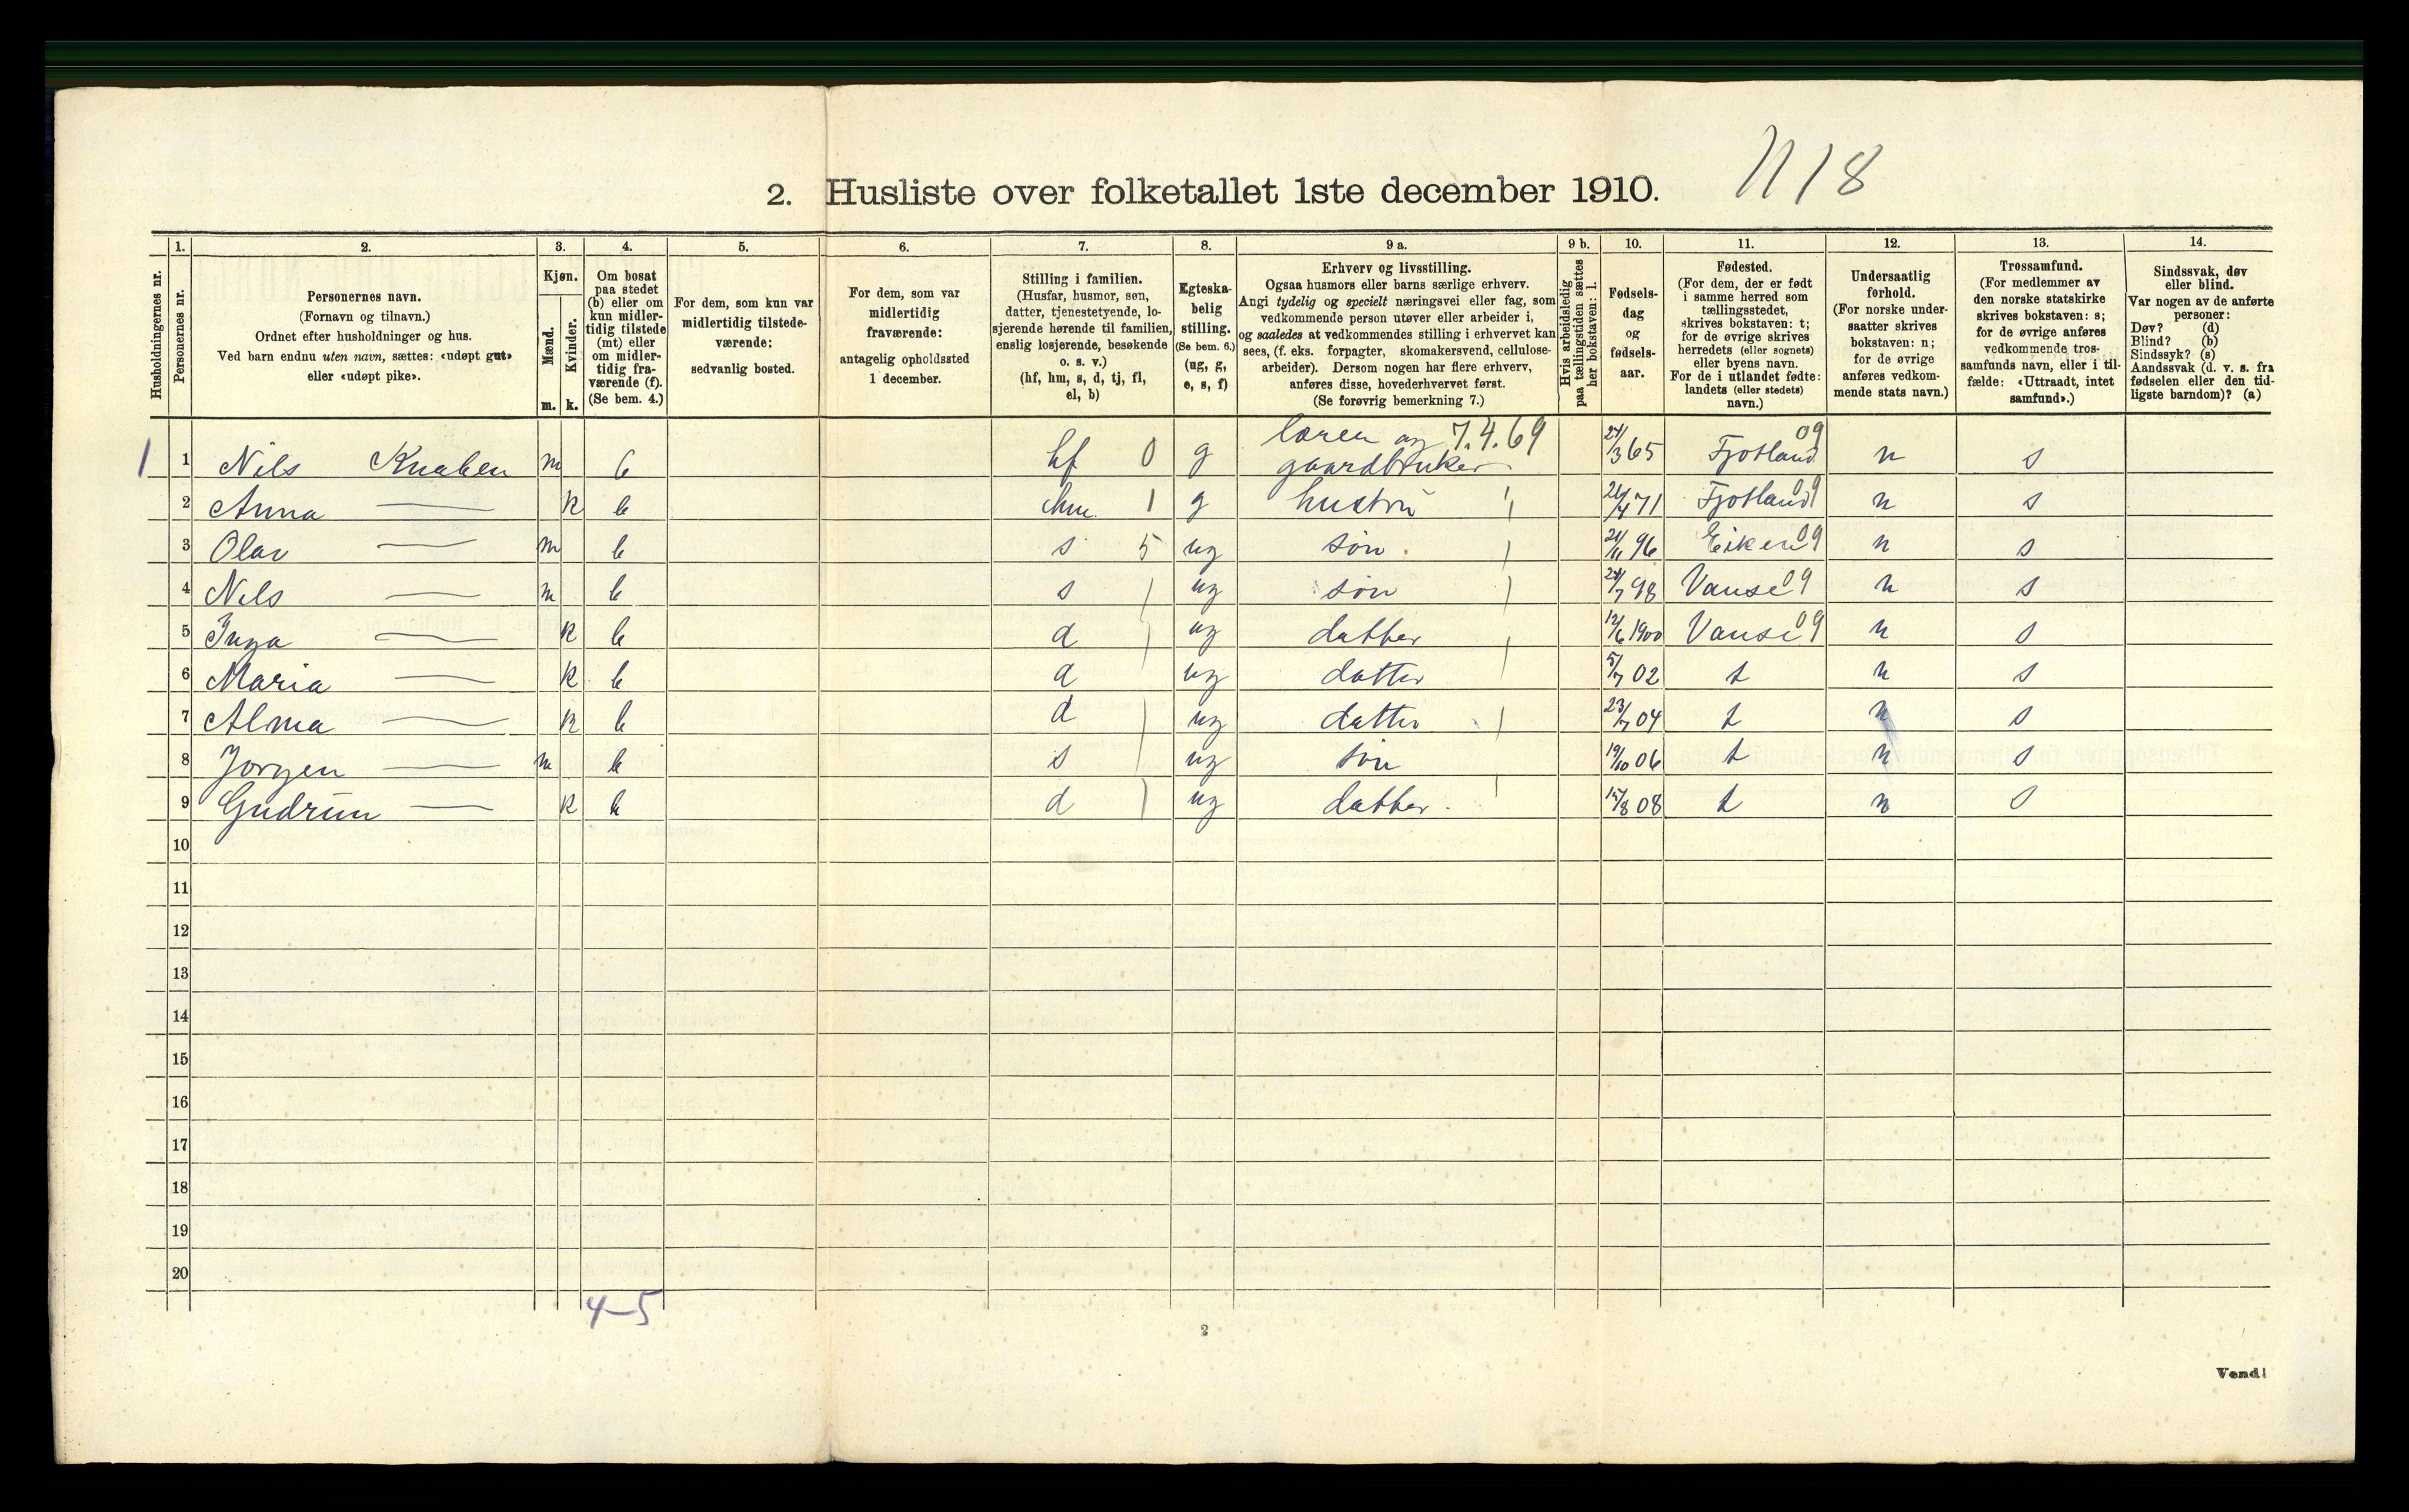 2. Husliste over folketallet 1ste december 1910. N 18
Husholdningernes nr.
1. Personernes nr.
2. Personernes navn.
(Fornavn og tilnavn.)
Ordnet efter husholdninger og hus.
Ved barn endnu uten navn, sættes: «udøpt gut»
eller «udøpt pike».
3. Kjøn.
Mænd. m.
Kvinder. k.
4. Om bosat
paa stedet
(b) eller om
kun midler-
tidig tilstede
(mt) eller
om midler-
tidig fra-
værende (f).
(Se bem. 4.)
5. For dem, som kun var
midlertidig tilstede-
værende:
sedvanlig bosted.
6. For dem, som var
midlertidig
fraværende:
antagelig opholdssted
1 december.
7. Stilling i familien.
(Husfar, husmor, søn,
datter, tjenestetyende, lo-
sjerende hørende til familien,
enslig losjerende, besøkende
o. s. v.)
(hf, hm, s, d, tj, fl,
el, b)
8. Egteska-
belig
stilling.
(Se bem. 6.)
(ug, g,
e, s, f)
9 a. Erhverv og livsstilling.
Ogsaa husmors eller barns særlige erhverv.
Angi tydelig og specielt næringsvei eller fag, som
vedkommende person utøver eller arbeider i,
og saaledes at vedkommendes stilling i erhvervet kan
sees, (f. eks. forpagter, skomakersvend, cellulose-
arbeider). Dersom nogen har flere erhverv,
anføres disse, hovederhvervet først.
(Se forøvrig bemerkning 7.)
9 b. Hvis arbeidsledig
paa tællingstiden sættes
her bokstaven: l.
10. Fødsels-
dag
og
fødsels-
aar.
11. Fødested.
(For dem, der er født
i samme herred som
tællingsstedet,
skrives bokstaven: t;
for de øvrige skrives
herredets (eller sognets)
eller byens navn.
For de i utlandet fødte:
landets (eller stedets)
navn.)
12. Undersaatlig
forhold.
(For norske under-
saatter skrives
bokstaven: n;
for de øvrige
anføres vedkom-
mende stats navn.)
13. Trossamfund.
(For medlemmer av
den norske statskirke
skrives bokstaven: s;
for de øvrige anføres
vedkommende tros-
samfunds navn, eller i til-
fælde: «Uttraadt, intet
samfund».)
14. Sindssvak, døv
eller blind.
Var nogen av de anførte
personer:
Døv? (d)
Blind? (b)
Sindssyk? (s)
Aandssvak (d. v. s. fra
fødselen eller den tid-
ligste barndom)? (a)
lærer og 7.4.69
1 1 Nils Knaben m b hf 0 g gaardbruker 24/3 65 Fjotland 09 n s
2 Anna — k b hm 1 g hustru 26/4 71 Fjotland 09 n s
3 Olav — m b s 5 ug søn 21/11 96 Eiken 09 n s
4 Nils — m b s ug søn 24/7 98 Vanse 09 n s
5 Inga — k b d ug datter 12/6 1900 Vanse 09 n s
6 Maria — k b d ug datter 5/7 02 t n s
7 Alma — k b d ug datter 23/7 04 t n s
8 Jørgen — m b s ug søn 19/10 06 t n s
9 Gudrun — k b d ug datter 15/8 08 t n s
10
11
12
13
14
15
16
17
18
19
20
4–5
2
Vend!